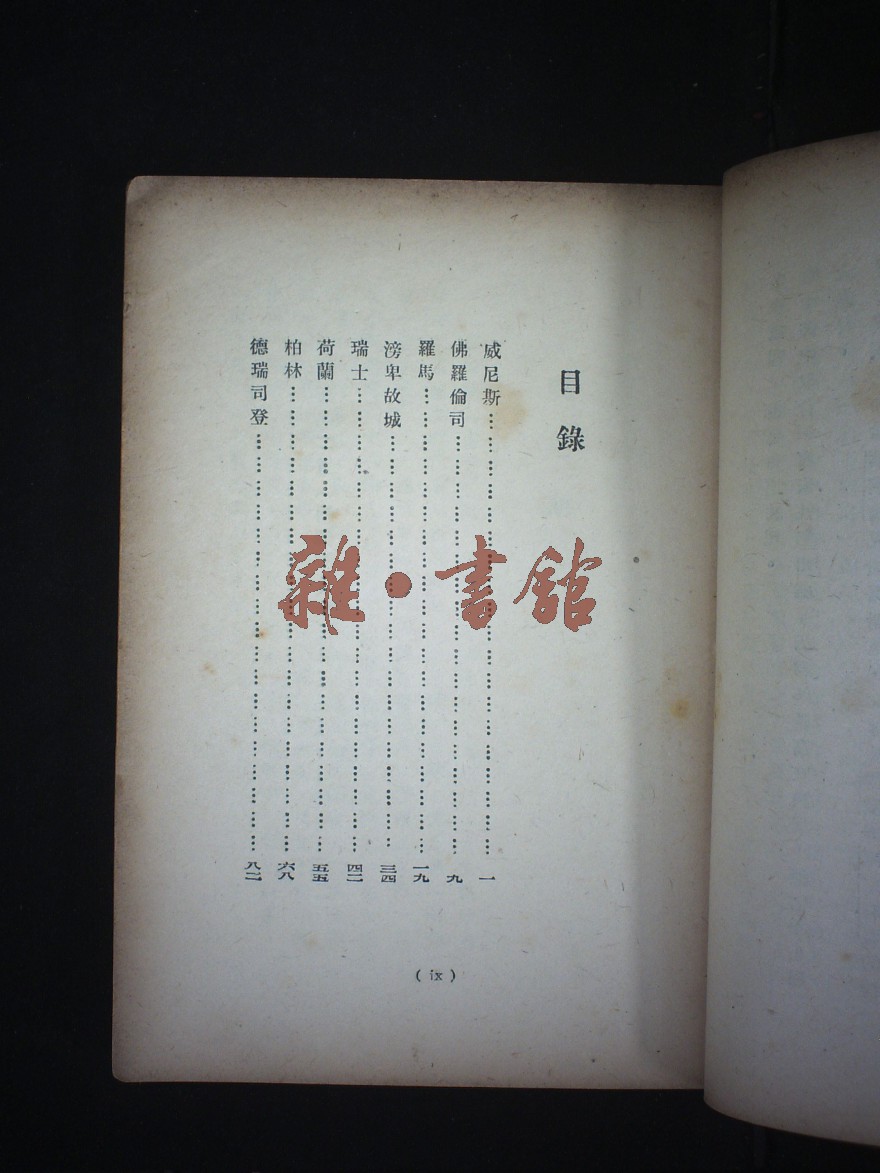 目錄
威尼斯……………………………………一
佛羅倫司……………………………………九
羅馬……………………………………一九
滂卑故城……………………………………三四
瑞士……………………………………四二
荷蘭……………………………………五五
柏林……………………………………六八
德瑞司登……………………………………八二
( ix )
雜·書館